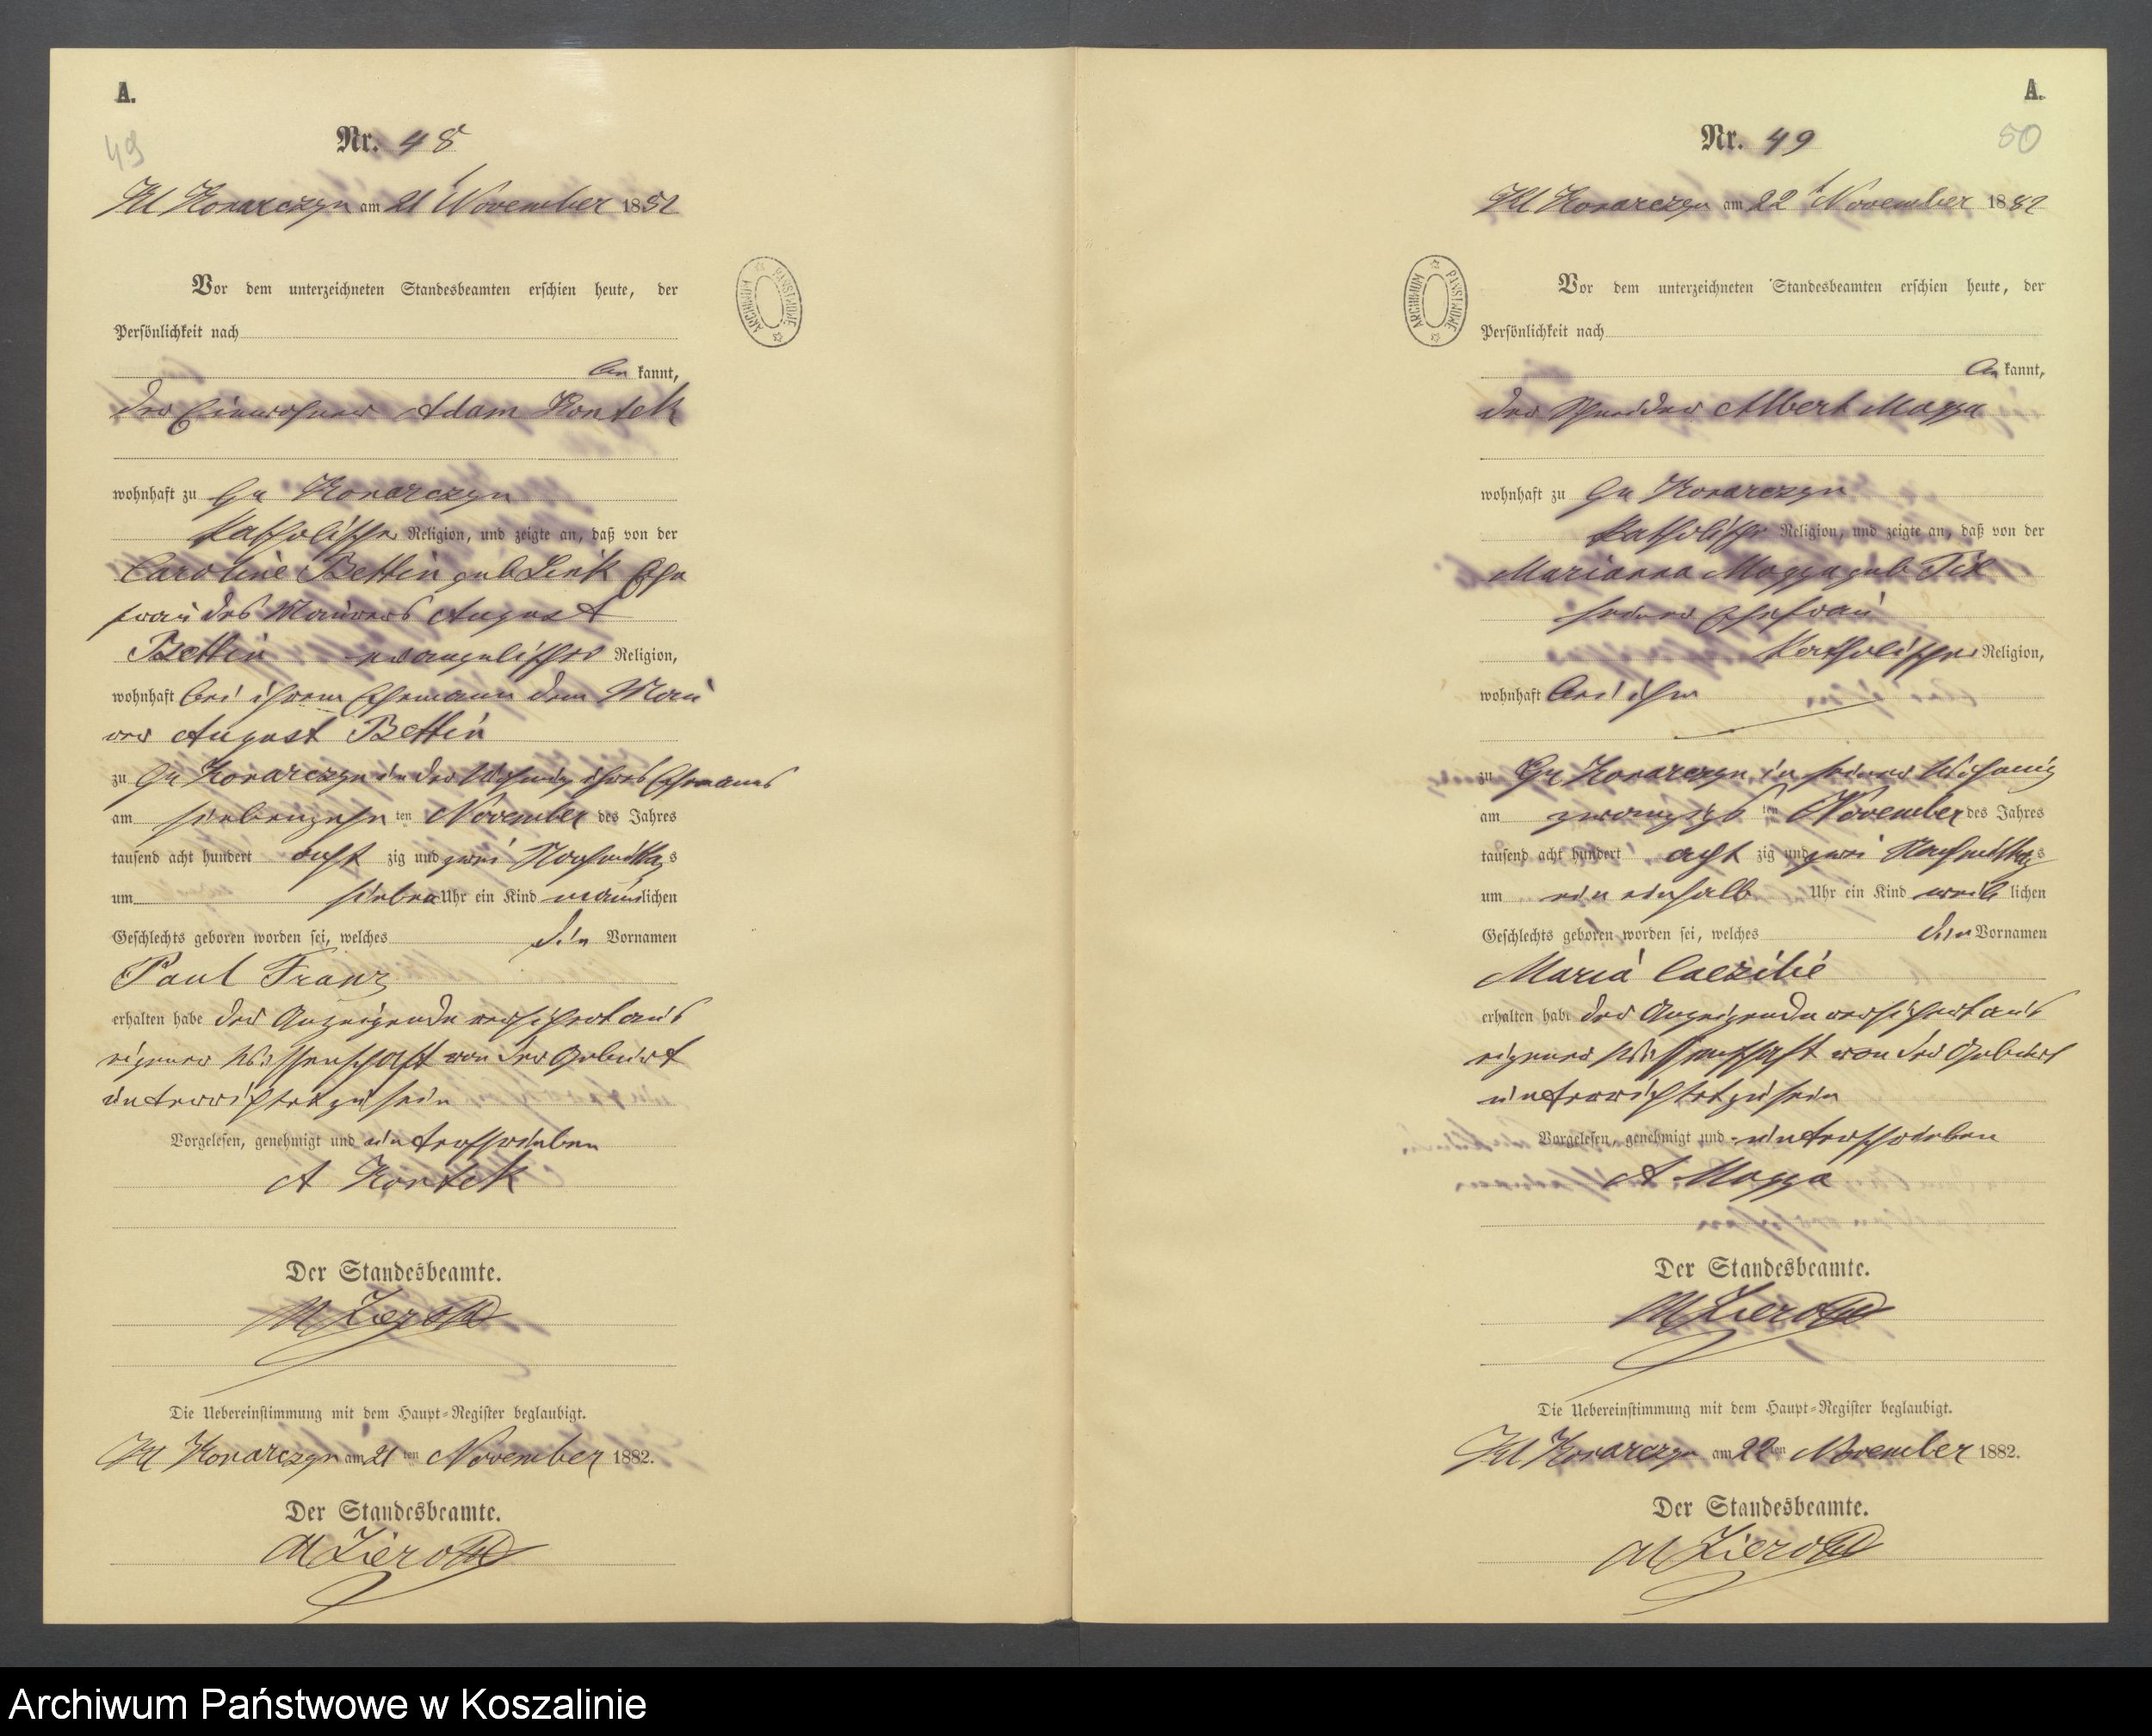 A.
49
Nr. 48
Kl Konarczyn am 21 November 1882
Vor dem unterzeichneten Standesbeamten erschien heute, der
Persönlichkeit nach
be kannt,
der Einwohner Adam Kontek
wohnhaft zu Gr Konarczyn
katholischer Religion, und zeigte an, daß von der
Caroline Bettin geb Link Ehe
frau des Maurers August
Bettin evangelischer Religion,
wohnhaft bei ihrem Ehemann dem Mau
rer August Bettin
zu Gr Konarczyn in der Wohnung ihres Ehemanns
am siebenzehn ten November des Jahres
tausend acht hundert acht zig und zwei Nachmittags
um sieben Uhr ein Kind männlichen
Geschlechts geboren worden sei, welches die Vornamen
Paul Franz
erhalten habe der Anzeigende versichert aus
eigener Wissenschaft von der Geburt
unterrichtet zu sein
Vorgelesen, genehmigt und unterschrieben
A Kontek
Der Standesbeamte.
Die Uebereinstimmung mit dem Haupt-Register beglaubigt.
Kl Konarczyn am 21 ten November 1882.
Der Standesbeamte.
ARCHIWUM PAŃSTWOWE
A.
50
Nr. 49
Kl Konarczyn am 22 November 1882
Vor dem unterzeichneten Standesbeamten erschien heute, der
Persönlichkeit nach
be kannt,
der Schneider Albert Mazza
wohnhaft zu Gr Konarczyn
katholischer Religion, und zeigte an, daß von der
Marianna Mazza geb
seiner Ehefrau
katholischer Religion,
wohnhaft bei ihm
zu Gr Konarczyn in seiner Wohnung
am zwanzigs ten November des Jahres
tausend acht hundert acht zig und zwei Nachmittags
um ein einhalb Uhr ein Kind weib lichen
Geschlechts geboren worden sei, welches die Vornamen
Maria Caezilie
erhalten habe der Anzeigende versichert aus
eigener Wissenschaft von der Geburt
unterrichtet zu sein
Vorgelesen, genehmigt und unterschrieben
A Mazza
Der Standesbeamte.
Die Uebereinstimmung mit dem Haupt-Register beglaubigt.
Kl Konarczyn am 22 ten November 1882.
Der Standesbeamte.
ARCHIWUM PAŃSTWOWE
Archiwum Państwowe w Koszalinie